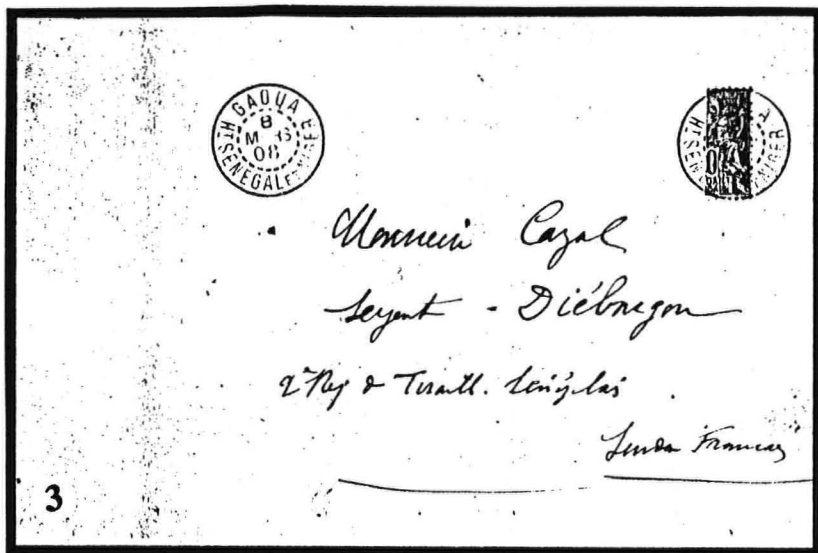 GAOUA
8
08
Ht SENEGAL ET NIGER
Ht SEN NIGER
Monsieur Cazal
Sergent - Diébougou
2e Reg de Tiraill. Sénégalais
Soudan Français
3